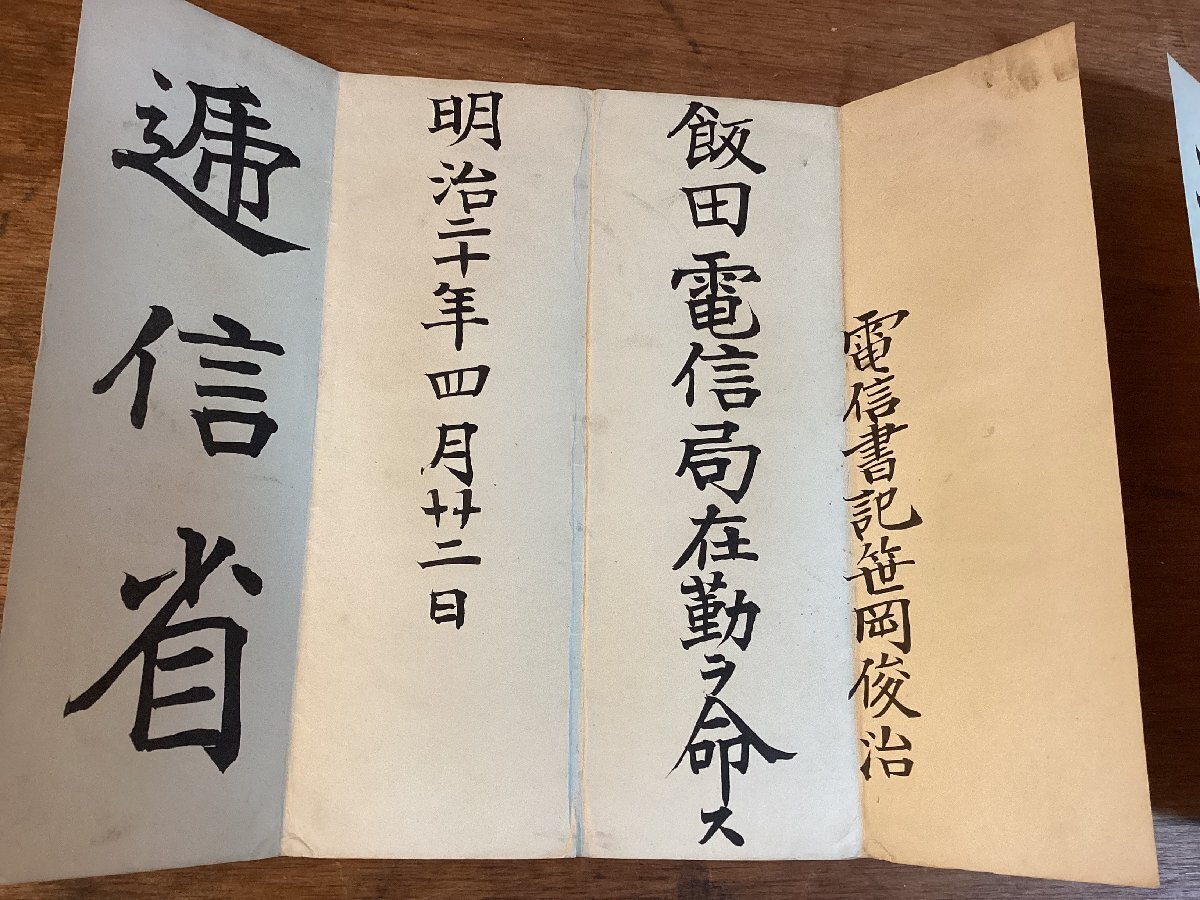 電信書記笹岡俊治
飯田電信局在勤ヲ命ス
明治二十年四月廿二日
遞信省